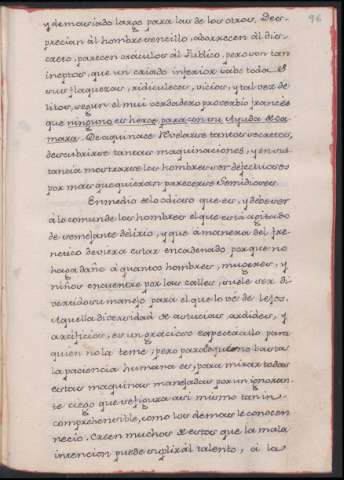 96
y demasiado largos para los de los otros. Des-
precian al hombre sencillo, aborrecen al dis-
creto, parecen oráculos al Publico, pero son tan
ineptos, que un criado inferior sabe todas
sus flaquezas, ridiculeces, vicios, y tal vez de-
litos, segun el mui verdadero proverbio frances
que ninguno es héroe para con su Ayuda de ca-
mara. De aqui nace revelarse tantos secretos,
descubrirse tantas maquinaciones, y en sus-
tancia mostrarse los hombres ser defectuosos
por mas que quieran parecerse Semidioses.
En medio de lo odioso que es, y debe ser
à lo comun de los hombres el que està agitado
de semejante delirio, y que à manera del fre-
netico deviera estar encadenado porque no
haga daño à quantos hombres, mugeres, y
niños encuentre por las calles, suele ser di-
vertido su manejo para el que lo vé de lejos.
Aquella diversidad de astucias, ardides, y
artificios, es un gracioso espectaculo para
quien no la teme; pero para lo que no basta
la paciencia humana es, para mirar todas
estas maquinas manejadas por un ignoran-
te ciego que se figura asi mismo tan in-
comprehensible, como los demas le conocen
necio. Creen muchos de estos que la mala
intencion puede suplir al talento, à la